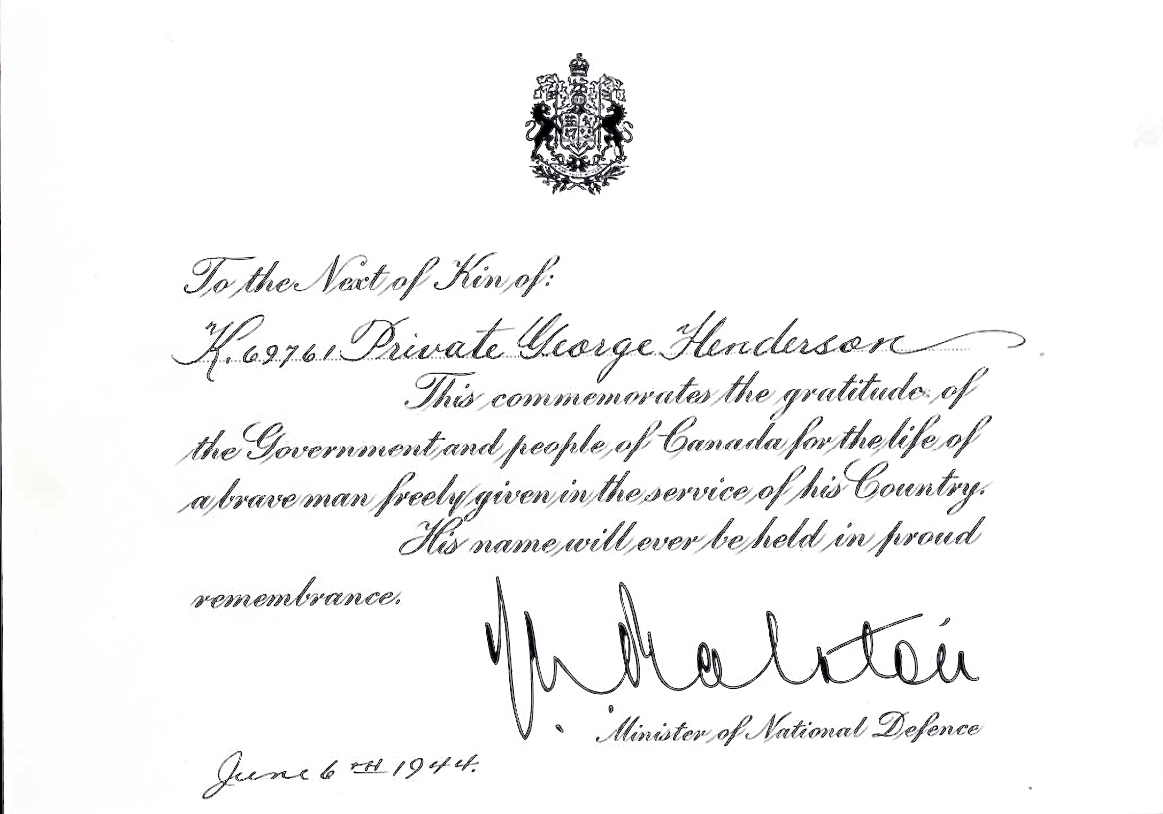 To the Next of Kin of:
K.69761 Private George Henderson
This commemorates the gratitude of
the Government and people of Canada for the life of
a brave man freely given in the service of his Country.
His name will ever be held in proud
remembrance.
J. L. Ralston
Minister of National Defence
June 6TH 1944.